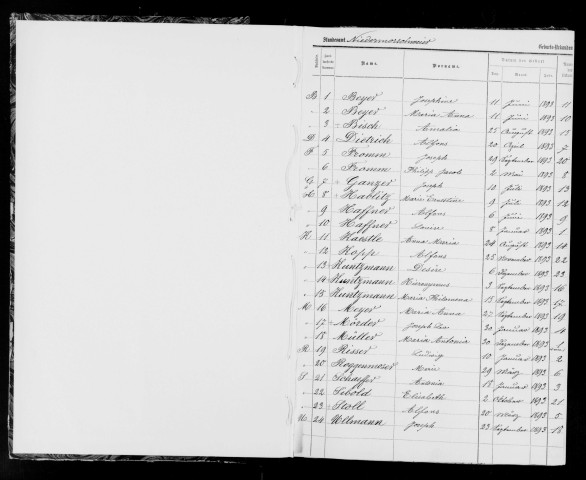 Standesamt Niedermorschweier Geburts-Urkunden
Name. Vorname. Datum der Geburt
Tag Monat Jahr
B 1 Beyer Josephine 11 Juni 1893 11
" 2 Beyer Maria Anna 11 Juni 1893 10
" 3 Bisch Amalia 25 August 1893 15
D 4 Dietrich Alfons 20 April 1893 7
F 5 Fromm Joseph 29 September 1893 20
" 6 Fromm Philipp Jacob 2 Mai 1893 8
G 7 Ganzer Joseph 10 Juli 1893 13
H 8 Marie Ernestine 9 Juli 1893 12
" 9 Haffner Alfons 6 Juni 1893 9
" 10 Haffner 8 Januar 1893 1
K 11 Kaestle Anna Maria 24 August 1893 14
" 12 Kopp Alfons 25 November 1893 22
" 13 Kuntzmann Désiré 6 Dezember 1893 23
" 14 Kuntzmann Hieronymus 3 September 1893 16
" 15 Kuntzmann Maria Philomena 15 September 1893 17
M 16 Meyer Maria Anna 27 September 1893 19
" 17 Mörder Joseph 20 Januar 1893 4
" 18 Müller Maria Antonia 20 Dezember 1893
R 19 Risser 10 Januar 1893 2
" 20 Roggenmoser Marie 29 März 1893 6
S 21 Schaeffer Antonia 18 Januar 1893 3
" 22 Sebold Elisabeth 2 October 1893 21
" 23 Stoll Alfons 20 März 1893 5
U 24 Ullmann Joseph 23 September 1893 18